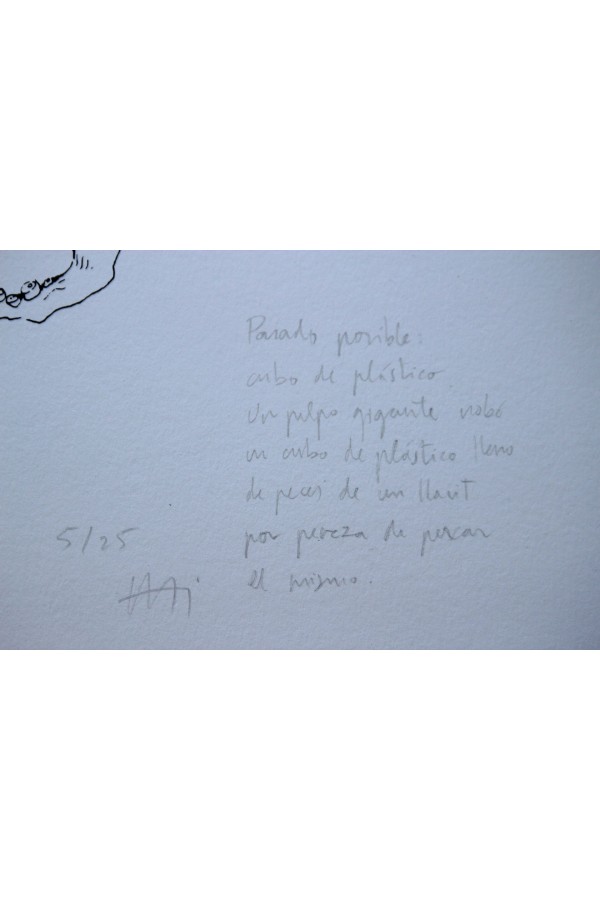 Pasado posible:
cubo de plástico
Un pulpo gigante robó
un cubo de plástico lleno
de peces de un llaüt
por pereza de pescar
el mismo.
5/25